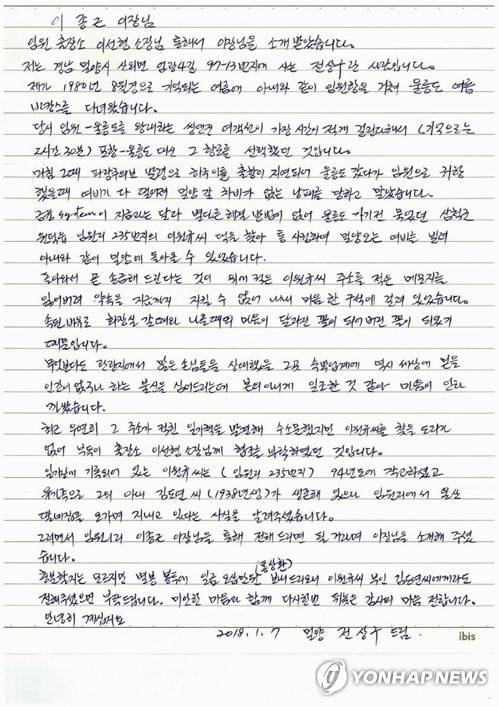 이 종근 이장님
임원 출장소 이선현 소장님 통해서 이장님을 소개 받았습니다.
저는 경남 밀양시 산외면 엄광4길 97-13번지에 사는 전상우란 시람입니다.
제가 1980년 8월경으로 기억되는 여름에 아내와 같이 임원항을 거쳐 울릉도 여름
바캉스를 다녀왔습니다.
당시 임원-울릉도를 왕래하는 쾌속 여객선이 가장 시간이 적게 걸린다해서
2시간 30분) 포항-울릉도 대신 그 항로를 선택했던 것입니다.
그때 파랑주의보 발령으로 하루이틀 출항이 지연되어 울릉도 갔다가 임원으로 귀항
했을때 여비가 다 떨어져 밀양 갈 차비가 없는 낭패를 당하고 말았습니다.
금융 system이 지금과는 달라 별다른 해결 방법이 없어 울릉도 가기전 묵었던 삼척군
원덕읍 임원리 235번지의 이원규씨 댁을 찾아 통 사정하여 밀양오는 여비를 빌려
아내와 같이 밀양에 돌아올 수 있었습니다.
돌아와서 곧 송금해 드린다는 것이 되어 적은 이원규씨 주소를 적은 메모지를
잃어버려 약속을 지금까지 지킬 수 없어 내내 마음 한 구석에 걸려 있었습니다.
속된 말로 화장실 갈때와 나올때의 마음이 달라진 꼴이 되어버린 꼴이 되었기
때문입니다.
무엇보다도 관광지에서 많은 손님들을 상대했을 그곳 숙박업계에 역시 세상에 믿을
인간이 없구나 하는 불신을 심어드리는데 본의아니게 일조한 것 같아 마음이 안타
까웠습니다.
최근 우연히 그 주소가 적힌 일기책을 발견해 수소문했지만 이원규씨를 찾을 도리가
없어 부득이 출장소 이선현 소장님께 협조를 부탁하였던 것입니다.
일기장에 기록되어 있는 이원규씨는 (임원리 235번지) 94년도에 작고하셨고
유가족으로 그의 아내 김도연 씨 (1938년생)가 생존해 있으나 임원리에서
오가며 지내고 있다는 사실을 알려주셨습니다.
그러면서 임원1리 이종근 이장님을 통해 전해 드리면 될 거라며 이장님을 소개해 주셨
습니다.
충분할지는 모르지만 별봉 봉투에 일금 오십만원(통상환) 보내드리오니 이원규씨 부인 김도연씨에게라도
전해주셨으면 부탁드립니다. 미안한 마음과 함께 다시한번 감사의 마음 전합니다.
안녕히 계십시요
2018.1.7 밀양 전상우 드림.
ibis
YONHAP NEWS